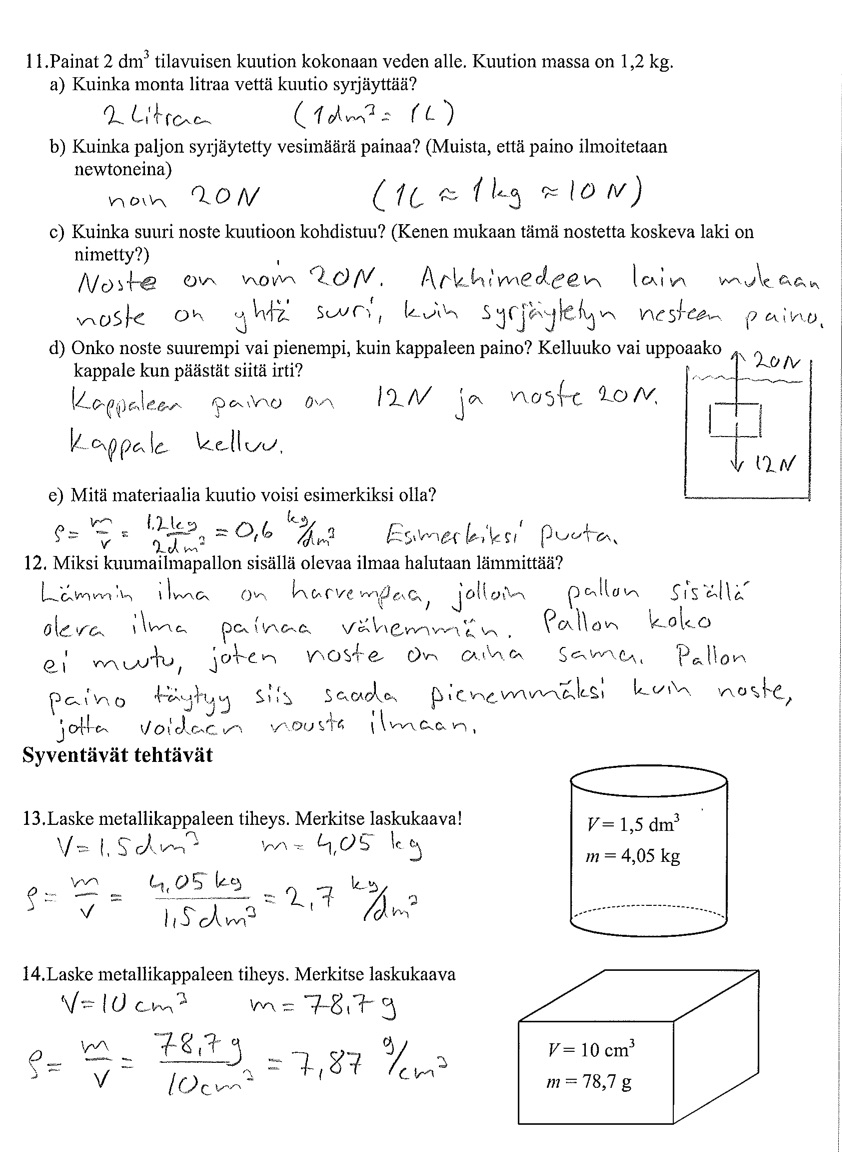 11.Painat 2 dm³ tilavuisen kuution kokonaan veden alle. Kuution massa on 1,2 kg.
a) Kuinka monta litraa vettä kuutio syrjäyttää?
2 Litraa (1dm³ = 1L)
b) Kuinka paljon syrjäytetty vesimäärä painaa? (Muista, että paino ilmoitetaan
newtoneina)
noin 20N (1L ≈ 1kg ≈ 10N)
c) Kuinka suuri noste kuutioon kohdistuu? (Kenen mukaan tämä nostetta koskeva laki on
nimetty?)
Noste on noin 20N. Arkhimedeen lain mukaan
noste on yhtä suuri, kuin syrjäytetyn nesteen paino.
d) Onko noste suurempi vai pienempi, kuin kappaleen paino? Kelluuko vai uppoaako
kappale kun päästät siitä irti?
20N
Kappaleen paino on 12N ja noste 20N.
Kappale kelluu.
12N
e) Mitä materiaalia kuutio voisi esimerkiksi olla?
ρ = m/v = 1,2kg/2dm³ = 0,6 kg/dm³ Esimerkiksi puuta.
12. Miksi kuumailmapallon sisällä olevaa ilmaa halutaan lämmittää?
Lämmin ilma on harvempaa, jolloin pallon sisällä
oleva ilma painaa vähemmän. Pallon koko
ei muutu, joten noste on aina sama. Pallon
paino täytyy siis saada pienemmäksi kuin noste,
jotta voidaan nousta ilmaan.
Syventävät tehtävät
13.Laske metallikappaleen tiheys. Merkitse laskukaava!
V=1,5dm³ m=4,05 kg
ρ = m/v = 4,05 kg/1,5dm³ = 2,7 kg/dm³
V = 1,5 dm³
m = 4,05 kg
14.Laske metallikappaleen tiheys. Merkitse laskukaava
V=10 cm³ m=78,7g
ρ = m/v = 78,7g/10cm³ = 7,87 g/cm³
V = 10 cm³
m = 78,7 g